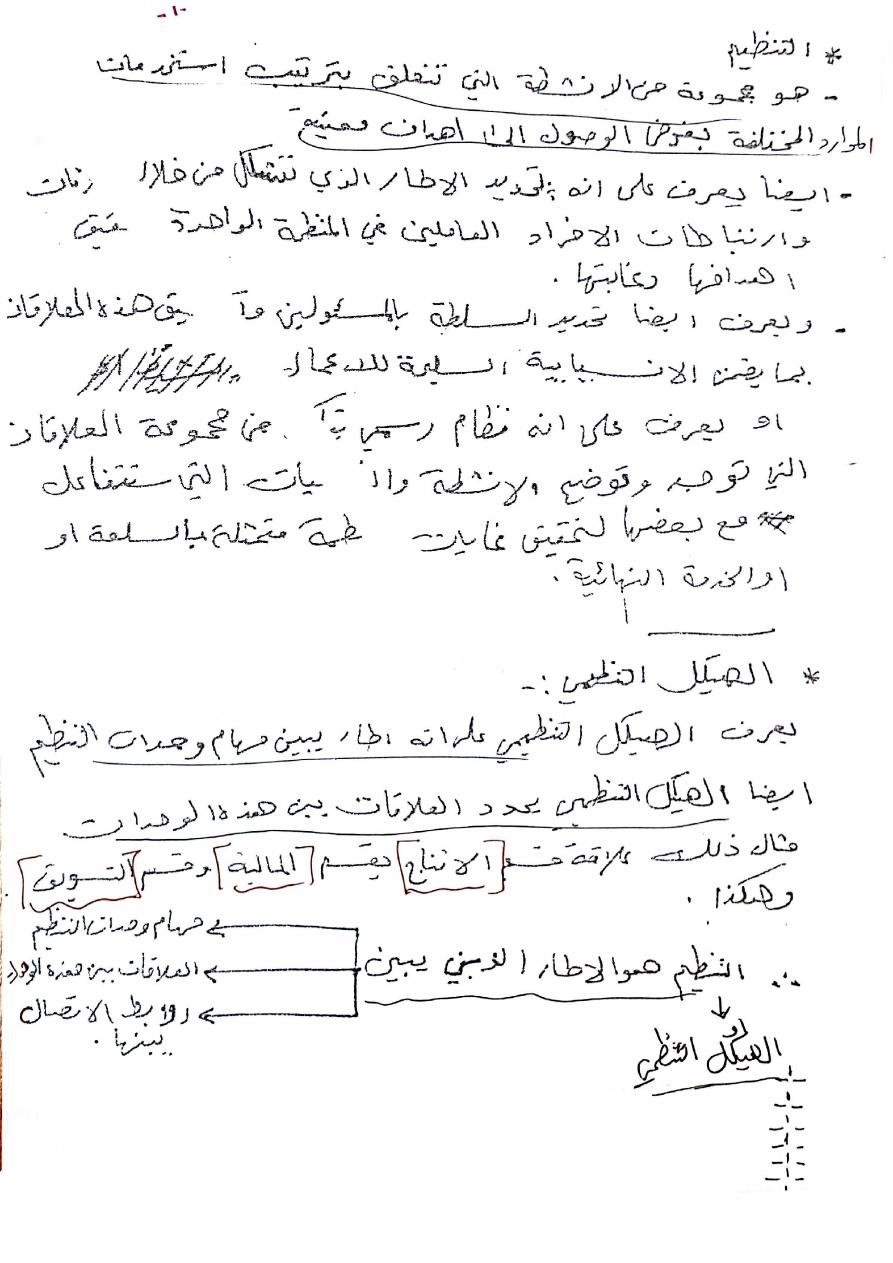 -١-
* التنظيم
- هو مجموعة من الانشطة التي تتعلق بترتيب استخدامات
الموارد المختلفة بغرض الوصول الى اهداف معينة
- ايضا يعرف على انه تحديد الاطار الذي تتشكل من خلال
وارتباطات الافراد العاملين في المنظمة الواحدة
اهدافها وغايتها .
- ويعرف ايضا تحديد السلطة بالمسئولين هذه العلاقات
بما يضمن الانسيابية السليمة للاعمال
او يعرف على انه نظام رسمي من مجموعة العلاقات
التي توجه وتوضح الانشطة التي ستتفاعل
مع بعضها لتحقيق غايات متمثلة بالسلعة او
او الخدمة النهائية .
* الهيكل التنظيمي :-
يعرف الهيكل التنظيمي على انه اطار يبين مهام وحدات التنظيم
ايضا الهيكل التنظيمي يحدد العلاقات بين هذه الوحدات
مثال ذلك علاقة قسم الانتاج بقسم المالية وقسم التسويق
وهكذا .
∴ التنظيم هو الاطار الذي يبين
مهام وحدات التنظيم
العلاقات بين هذه
روابط الاتصال
بينها .
او
الهيكل التنظيمي